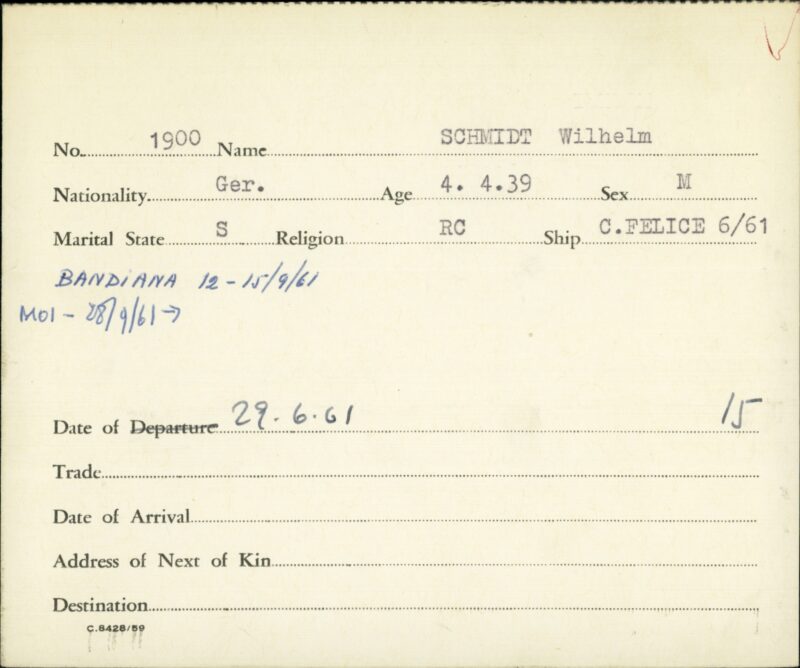 No. 1900 Name SCHMIDT Wilhelm
Nationality Ger. Age 4. 4.39 Sex M
Marital State S Religion RC Ship C.FELICE 6/61
BANDIANA 12-15/9/61
MOI - 28/9/61→
Date of Departure 29.6.61 15
Trade
Date of Arrival
Address of Next of Kin
Destination
C.8428/59